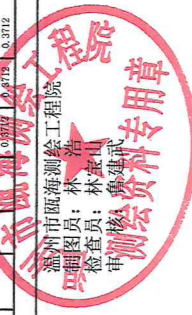 0.3712 0.3712 0.3712
温州市瓯海测绘工程院
制图员：林 浩
检查员：林宝山
审 核：鲁建武
市瓯海测绘工程院
测绘资料专用章